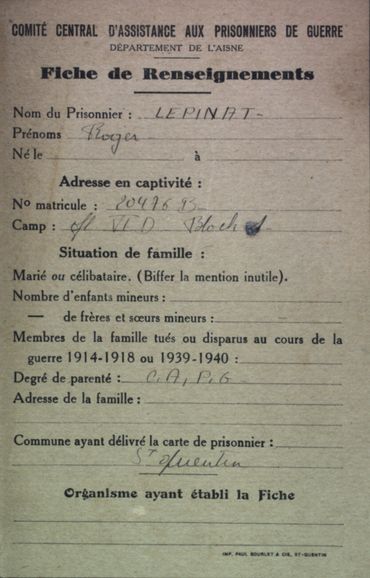 COMITÉ CENTRAL D'ASSISTANCE AUX PRISONNIERS DE GUERRE
DÉPARTEMENT DE L'AISNE
Fiche de Renseignements
Nom du Prisonnier : LEPINAT
Prénoms Roger
Né le à
Adresse en captivité :
No matricule :
Camp : VI D Block
Situation de famille :
Marié ou célibataire. (Biffer la mention inutile).
Nombre d'enfants mineurs :
— de frères et sœurs mineurs :
Membres de la famille tués ou disparus au cours de la
guerre 1914-1918 ou 1939-1940 :
Degré de parenté : C.A.P.G
Adresse de la famille :
Commune ayant délivré la carte de prisonnier :
St Quentin
Organisme ayant établi la Fiche
IMP. PAUL BOURLET & CIE, ST-QUENTIN